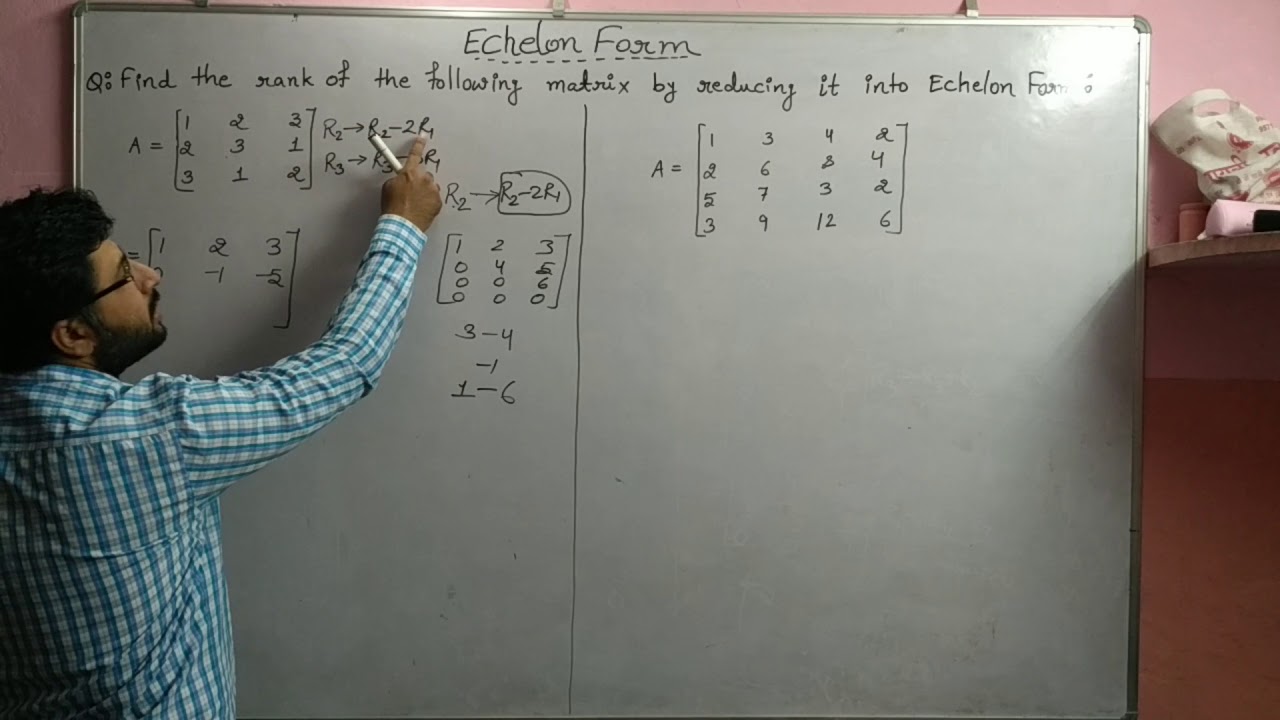 Echelon Form
Q: Find the rank of the following matrix by reducing it into Echelon Form :
A = [1 2 3] R₂→R₂-2R₁
[2 3 1] R₃→R₃- R₁
[3 1 2]
R₂→R₂-2R₁
= [1 2 3]
-1 -5
[1 2 3]
[0 4 5]
[0 0 6]
[0 0 0]
3-4
-1
1-6
A = [1 3 4 2]
[2 6 8 4]
[5 7 3 2]
[3 9 12 6]